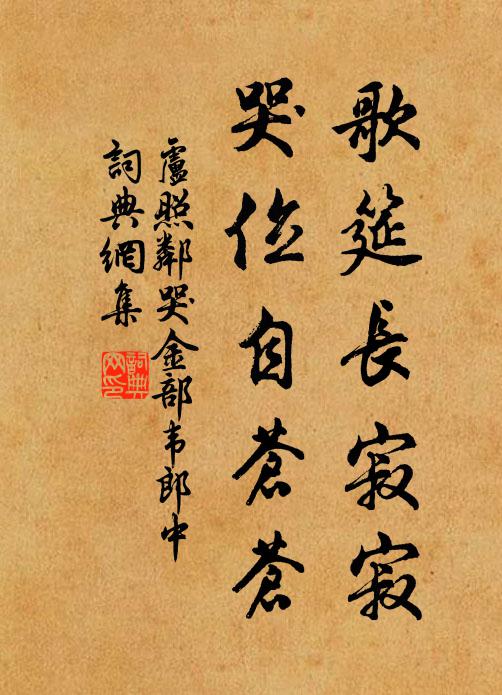 歌筵長寂寂
哭位自蒼蒼
盧照鄰哭金部韦郎中
詞典網集
詞典网印